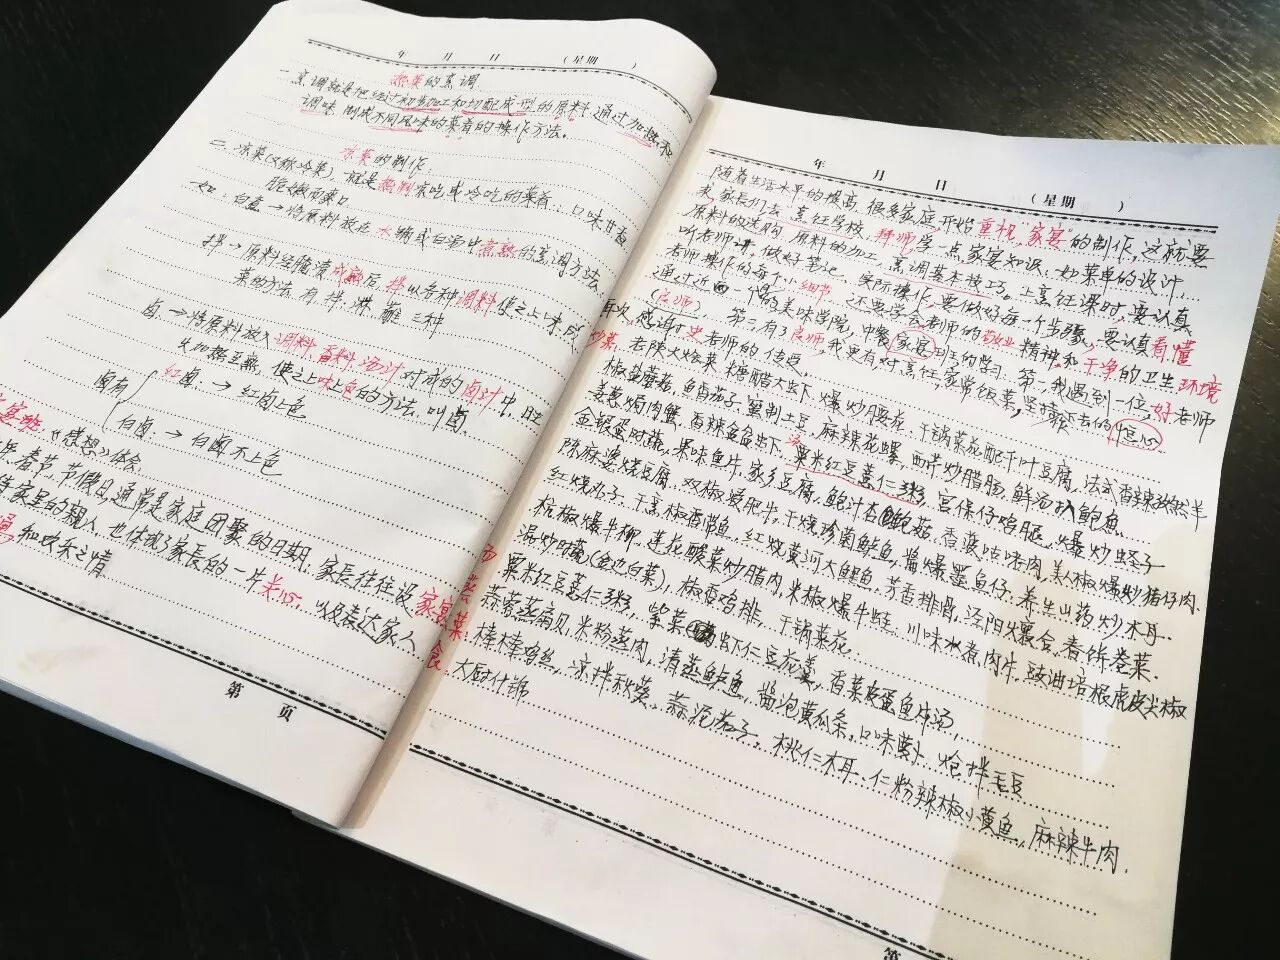 年 月 日 （星期 ）
热菜的烹调
一.烹调就是把经过初步加工和切配成型的原料,通过加热和
调味,制成不同风味的菜肴的操作方法。
凉菜的制作.
二.凉菜(又称冷菜),就是热制凉吃或冷吃的菜肴,口味甘香
脆嫩而爽口
如:白煮→将原料放在水锅或白汤中煮熟的烹调方法.
拌→原料经腌渍成熟后,拌以各种调料使之上味,成
菜的方法.有拌.淋.蘸三种
卤→将原料放入调料,香料,汤汁对成的卤汁中,旺
火加热至熟,使之上味上色的方法.叫卤.
卤有
红卤.→红卤上色
白卤→白卤不上色
《感想》体会.
春节.节假日,通常是家庭团聚的日期.家长往往设家宴
家里的親人.也体现了家长的一片关心,以及表达家人
和欢乐之情
第 页
年 月 日 （星期 ）
随着生活水平的提高,很多家庭,开始重视"家宴"的制作,这就要
求家长们去烹饪学校,拜师学一点家宴知识.如菜单的设计,
原料的选购,原料的加工.烹调基本技巧.上烹饪课时,要认真
听老师讲,做好笔记.实际操作,要做好每一个步骤,要认真看懂
老师操作的每个细节,还要学会老师的敬业精神和干净的卫生环境
通过近四个的美味学院,中餐家宴班的学习.第一,我遇到一位,好老师
(良师).第二,有了良师,我更有对烹饪,家常饭菜,坚持下去的恒心
再次感谢史老师的传受.
炒菜.老陕大烩菜.糖醋大虾.爆炒腰花,干锅菜花配千叶豆腐,法式香辣孜然羊
椒盐蘑菇,鱼香茄子,蜜制土豆,麻辣花螺,西芹炒腊肠,鲜汤 鲍鱼
姜葱焗肉蟹,香辣盆盆虾,粟米红豆薏仁粥,宫保仔鸡腿,爆炒蛏子
金银蛋时蔬,果味鱼片,家乡豆腐,鲍汁杏鲍菇,香菠咕咾肉,美椒爆炒猪仔肉.
陈麻婆烧豆腐,双椒爱肥牛,干烧珍菌鲈鱼,酱爆墨鱼仔,养生山药炒木耳.
红烧丸子.干烹椒香带鱼,红烧黄河大鲤鱼,芳香排骨,泾阳爆合,春饼卷菜.
杭椒爆牛柳,莲花酸菜炒腊肉,米椒爆牛蛙,川味水煮肉片,豉油培根虎皮尖椒
汤炒时蔬(金边白菜),椒香鸡排,干锅菜花
粟米红豆薏仁粥,紫菜虾仁豆花羹,香菜皮蛋鱼片汤,
蒜蓉蒸扇贝,米粉蒸肉,清蒸鲈鱼,酱泡黄瓜条,口味萝卜,炝拌毛豆
棒棒鸡丝,凉拌秋葵,蒜泥茄子.桃仁木耳.仁粉辣椒小黄鱼,麻辣牛肉.
大厨什锦
第